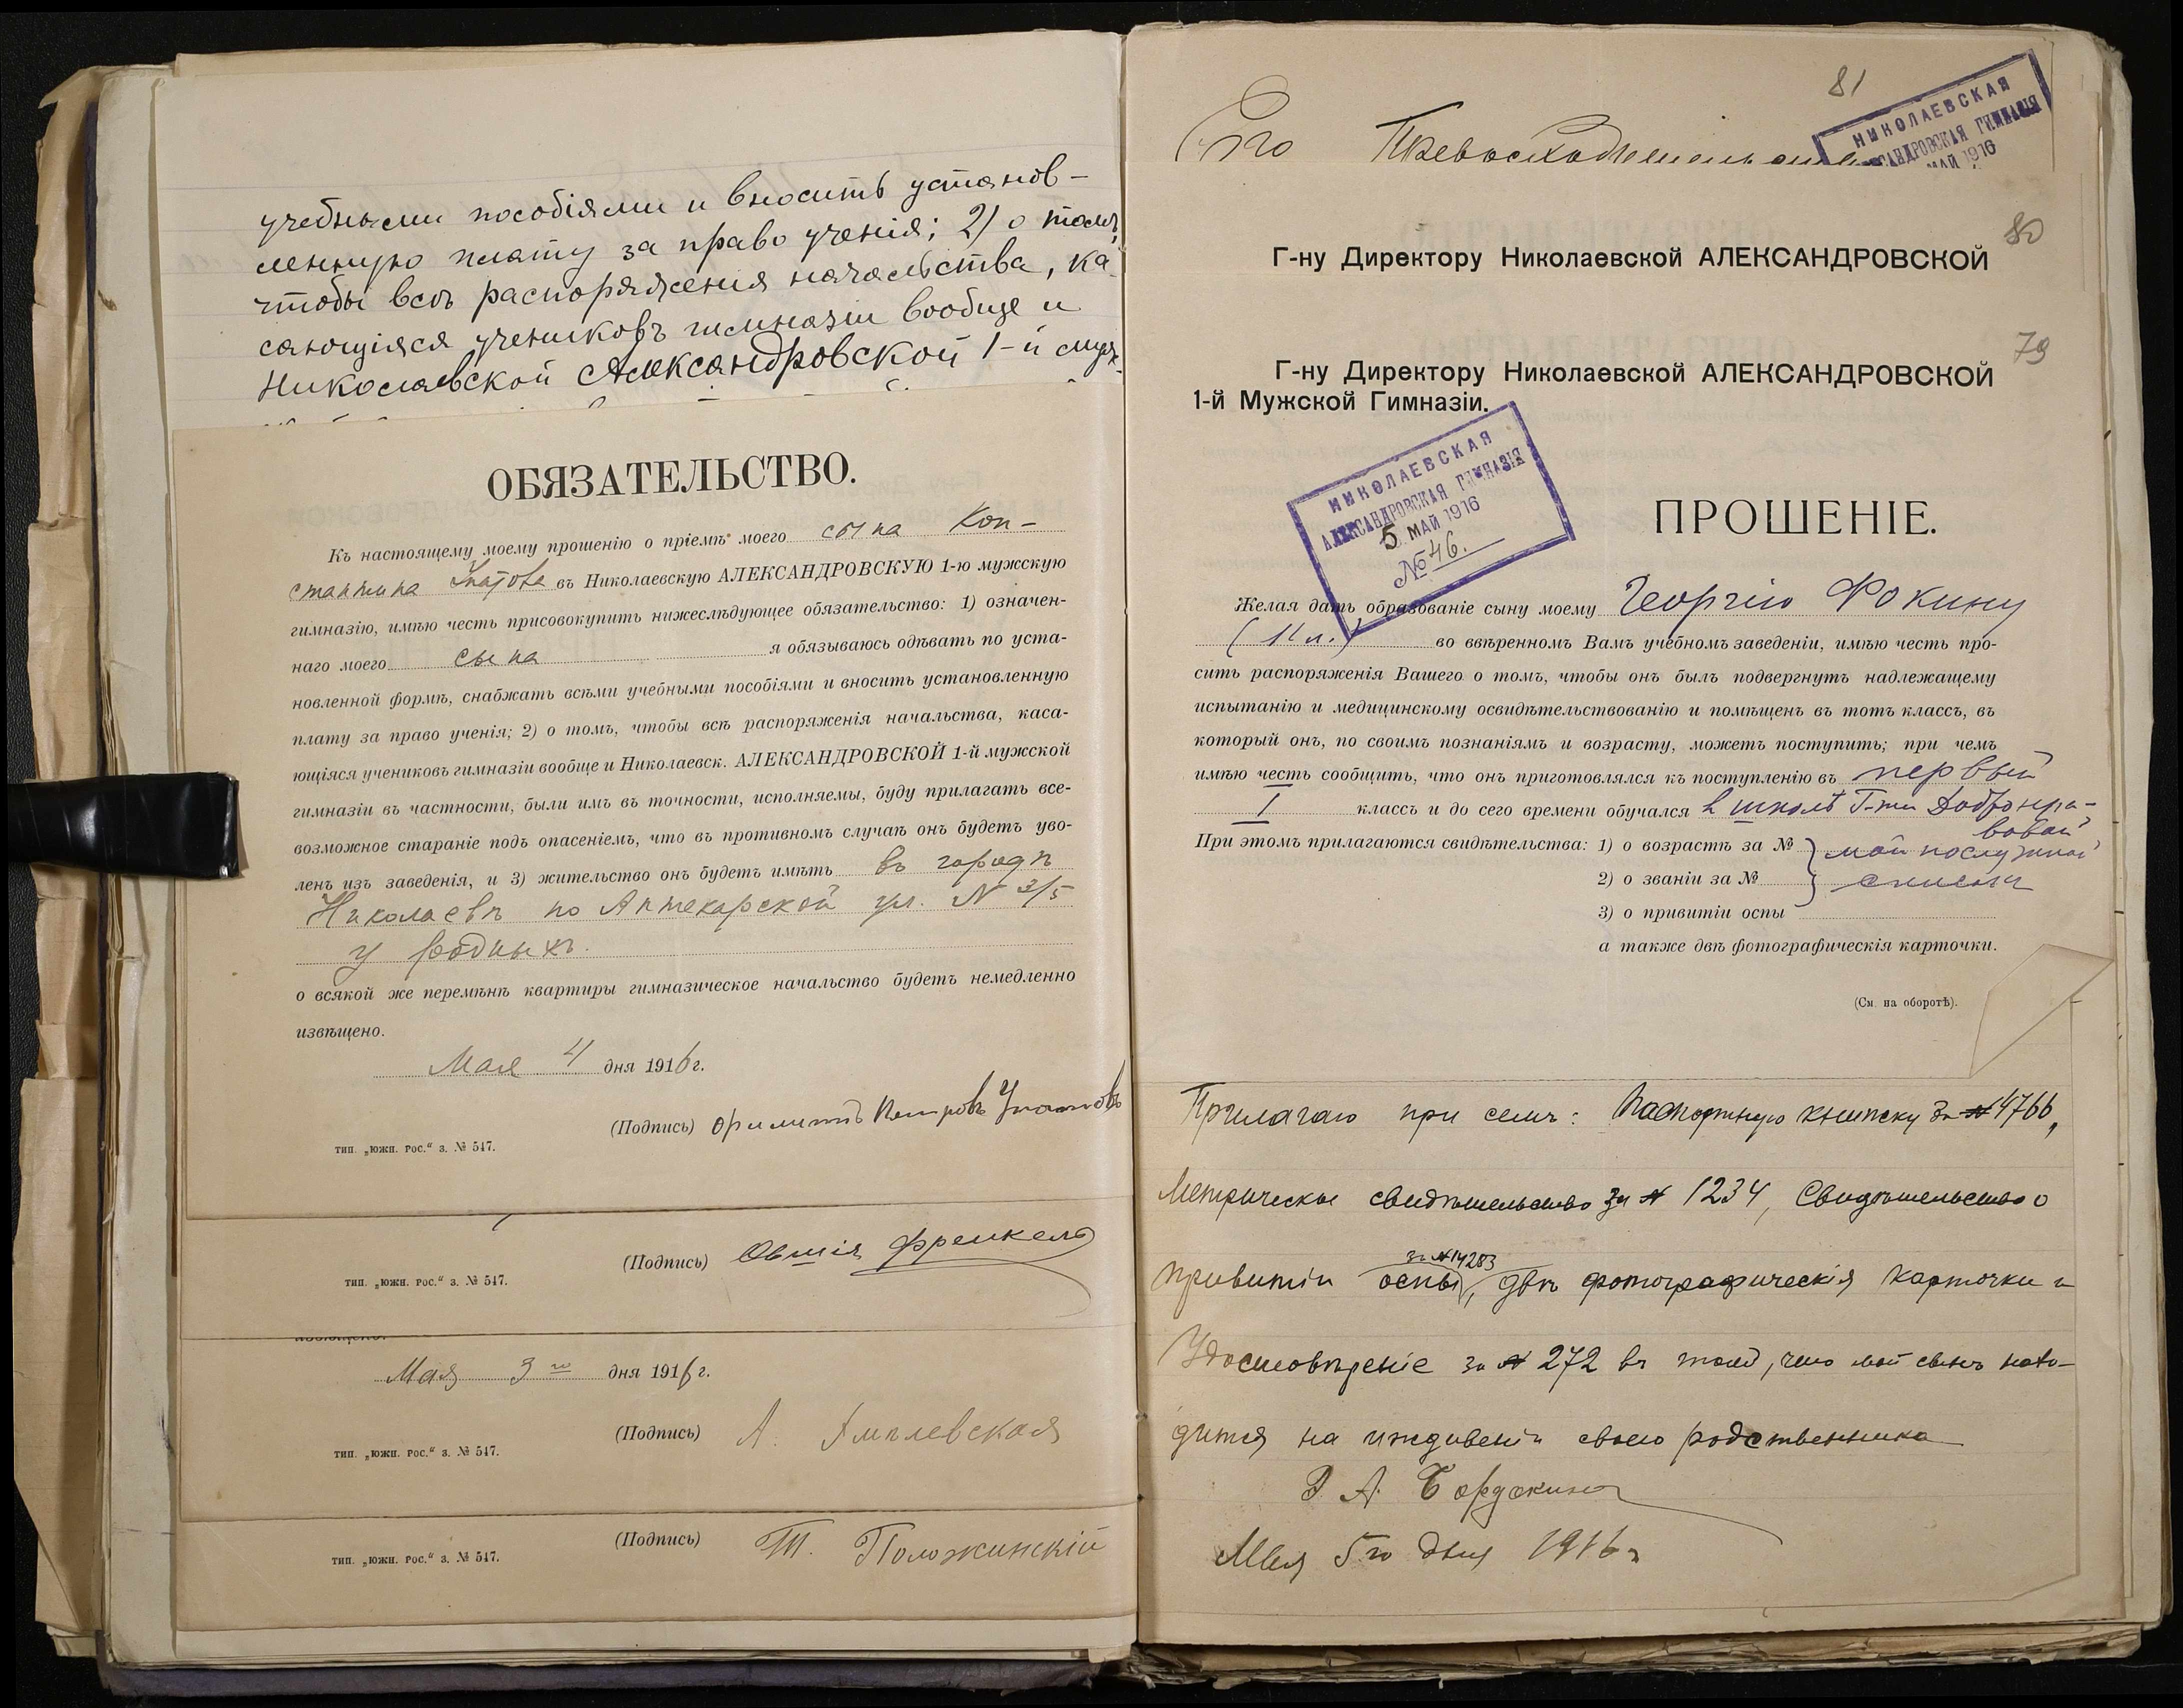 учебными пособіями и вносить установ-
ленную плату за право ученія; 2) о томъ,
чтобы всѣ распоряженія начальства, ка-
сающіяся учениковъ гимназіи вообще и
Николаевской Александровской 1-й муж-
ОБЯЗАТЕЛЬСТВО.
Къ настоящему моему прошенію о пріемѣ моего сына Кон-
стантина въ Николаевскую АЛЕКСАНДРОВСКУЮ 1-ю мужскую
гимназію, имѣю честь присовокупить нижеслѣдующее обязательство: 1) означен-
наго моего сына я обязываюсь одѣвать по уста-
новленной формѣ, снабжать всѣми учебными пособіями и вносить установленную
плату за право ученія; 2) о томъ, чтобы всѣ распоряженія начальства, каса-
ющіяся учениковъ гимназіи вообще и Николаевск. АЛЕКСАНДРОВСКОЙ 1-й мужской
гимназіи въ частности, были имъ въ точности, исполняемы, буду прилагать все-
возможное стараніе подъ опасеніемъ, что въ противномъ случаѣ онъ будетъ уво-
ленъ изъ заведенія, и 3) жительство онъ будетъ имѣть въ городѣ
Николаевѣ по Аптекарской ул. № 3/5
у родныхъ.
о всякой же перемѣнѣ квартиры гимназическое начальство будетъ немедленно
извѣщено.
Мая 4 дня 1916 г.
(Подпись) Петровъ
тип. „южн. рос.“ з. № 547.
(Подпись) Овшія Френкель
тип. „южн. рос.“ з. № 547.
Мая 3го дня 1916 г.
(Подпись) А.
тип. „южн. рос.“ з. № 547.
(Подпись) Положинскій
тип. „южн. рос.“ з. № 547.
81
Его Превосходительству
НИКОЛАЕВСКАЯ
АЛЕКСАНДРОВСКАЯ ГИМНАЗІЯ
МАЙ 1916
80
Г-ну Директору Николаевской АЛЕКСАНДРОВСКОЙ
79
Г-ну Директору Николаевской АЛЕКСАНДРОВСКОЙ
1-й Мужской Гимназіи.
НИКОЛАЕВСКАЯ
АЛЕКСАНДРОВСКАЯ ГИМНАЗІЯ
5 МАЙ 1916
№ 46.
ПРОШЕНІЕ.
Желая дать образованіе сыну моему Георгію Фокину
(11 л.) во ввѣренномъ Вамъ учебномъ заведеніи, имѣю честь про-
сить распоряженія Вашего о томъ, чтобы онъ былъ подвергнутъ надлежащему
испытанію и медицинскому освидѣтельствованію и помѣщенъ въ тотъ классъ, въ
который онъ, по своимъ познаніямъ и возрасту, можетъ поступить; при чемъ
имѣю честь сообщить, что онъ приготовлялся къ поступленію въ первый
I классъ и до сего времени обучался в школѣ Г-жи Добронра-
вовой
При этомъ прилагаются свидѣтельства: 1) о возрастѣ за № } мой послужной
2) о званіи за № списокъ
3) о привитіи оспы
а также двѣ фотографическія карточки.
(См. на оборотѣ).
Прилагаю при семъ: Паспортную книжку за № 4766,
Метрическое свидѣтельство за № 1234, Свидѣтельство о
привитіи оспы за № 14283, двѣ фотографическія карточки и
Удостовѣреніе за № 272 въ томъ, что мой сынъ нахо-
дится на иждивеніи своего родственника
А.
Мая 5го дня 1916 г